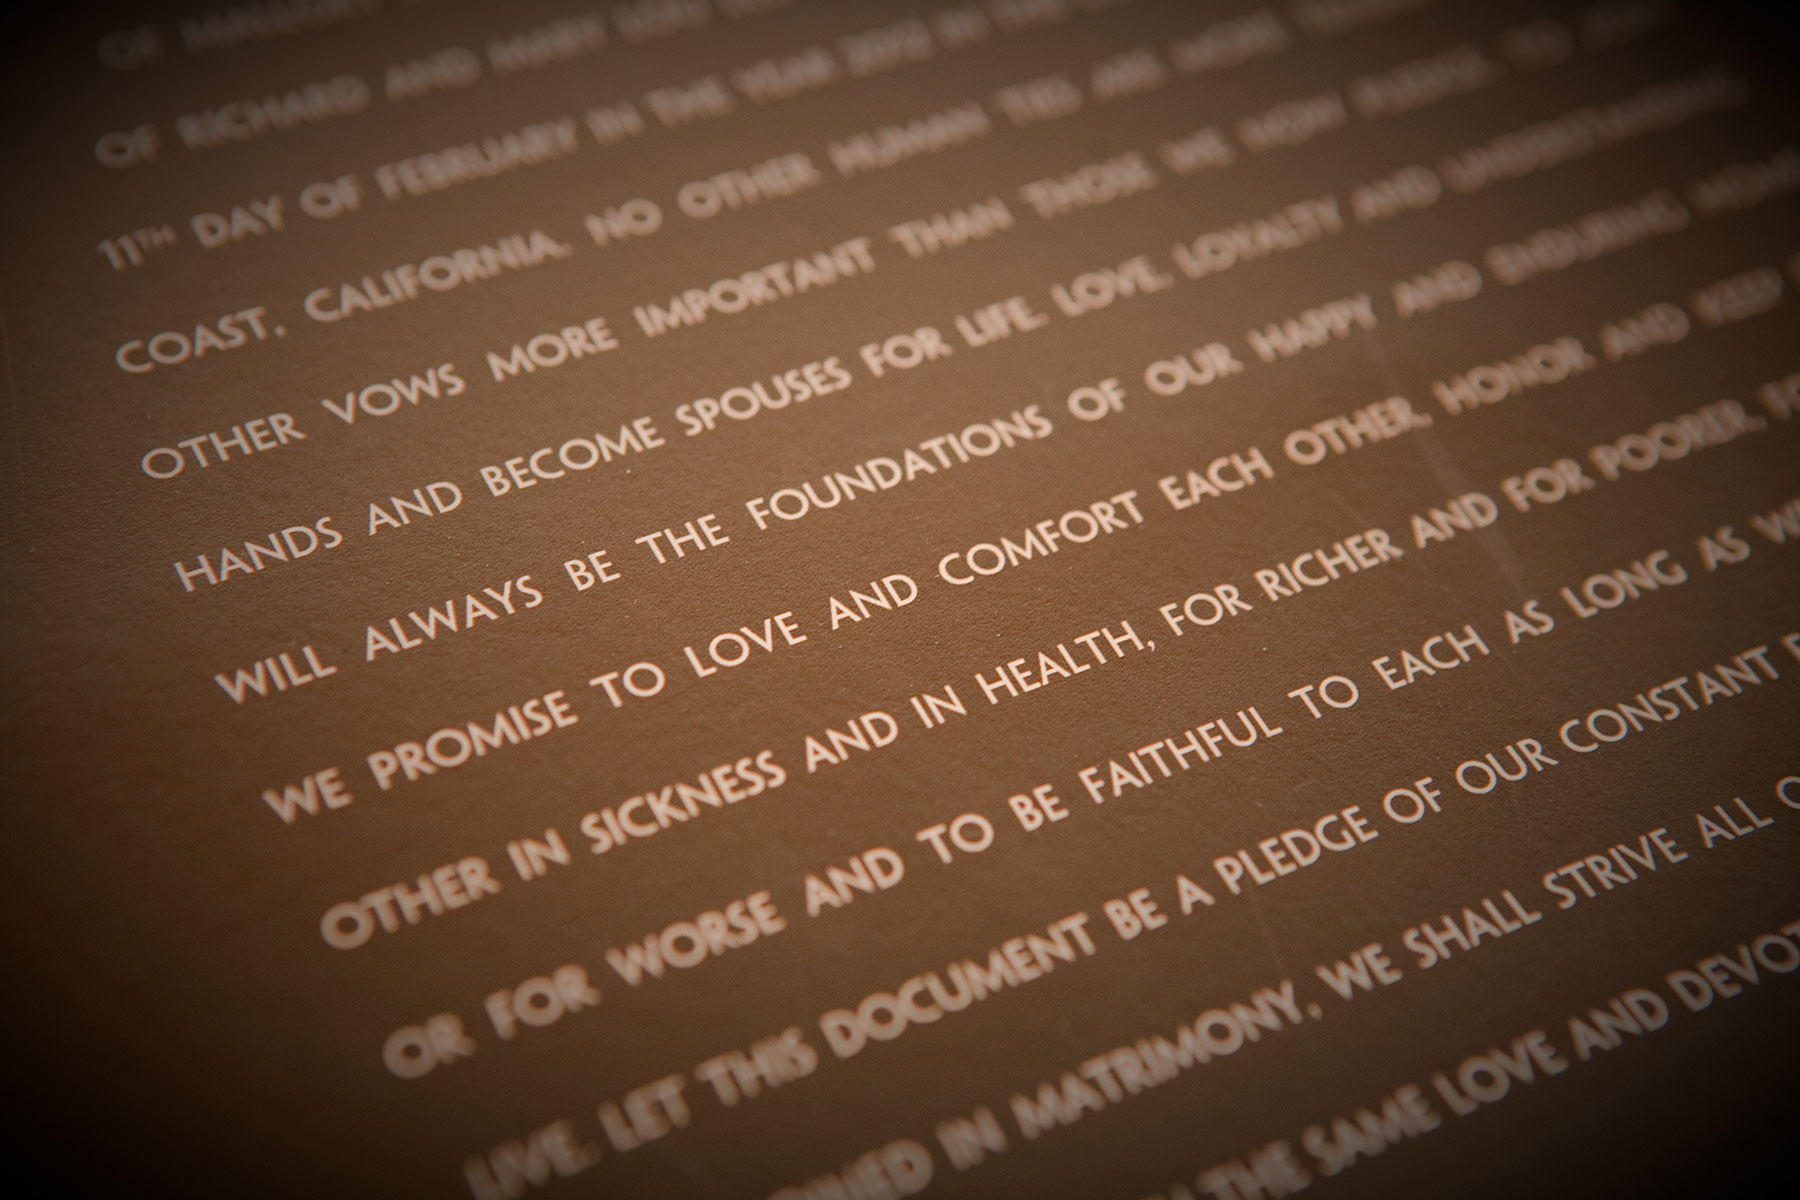 OF RICHARD AND MARY LOU
11TH DAY OF FEBRUARY IN THE YEAR 2012 IN THE
COAST, CALIFORNIA. NO OTHER HUMAN TIES ARE MORE
OTHER VOWS MORE IMPORTANT THAN THOSE WE NOW PLEDGE. TO
HANDS AND BECOME SPOUSES FOR LIFE. LOVE, LOYALTY AND UNDERSTANDING
WILL ALWAYS BE THE FOUNDATIONS OF OUR HAPPY AND ENDURING
WE PROMISE TO LOVE AND COMFORT EACH OTHER, HONOR AND KEEP
OTHER IN SICKNESS AND IN HEALTH, FOR RICHER AND FOR POORER,
OR FOR WORSE AND TO BE FAITHFUL TO EACH AS LONG AS
LIVE. LET THIS DOCUMENT BE A PLEDGE OF OUR CONSTANT
IN MATRIMONY, WE SHALL STRIVE ALL
THE SAME LOVE AND